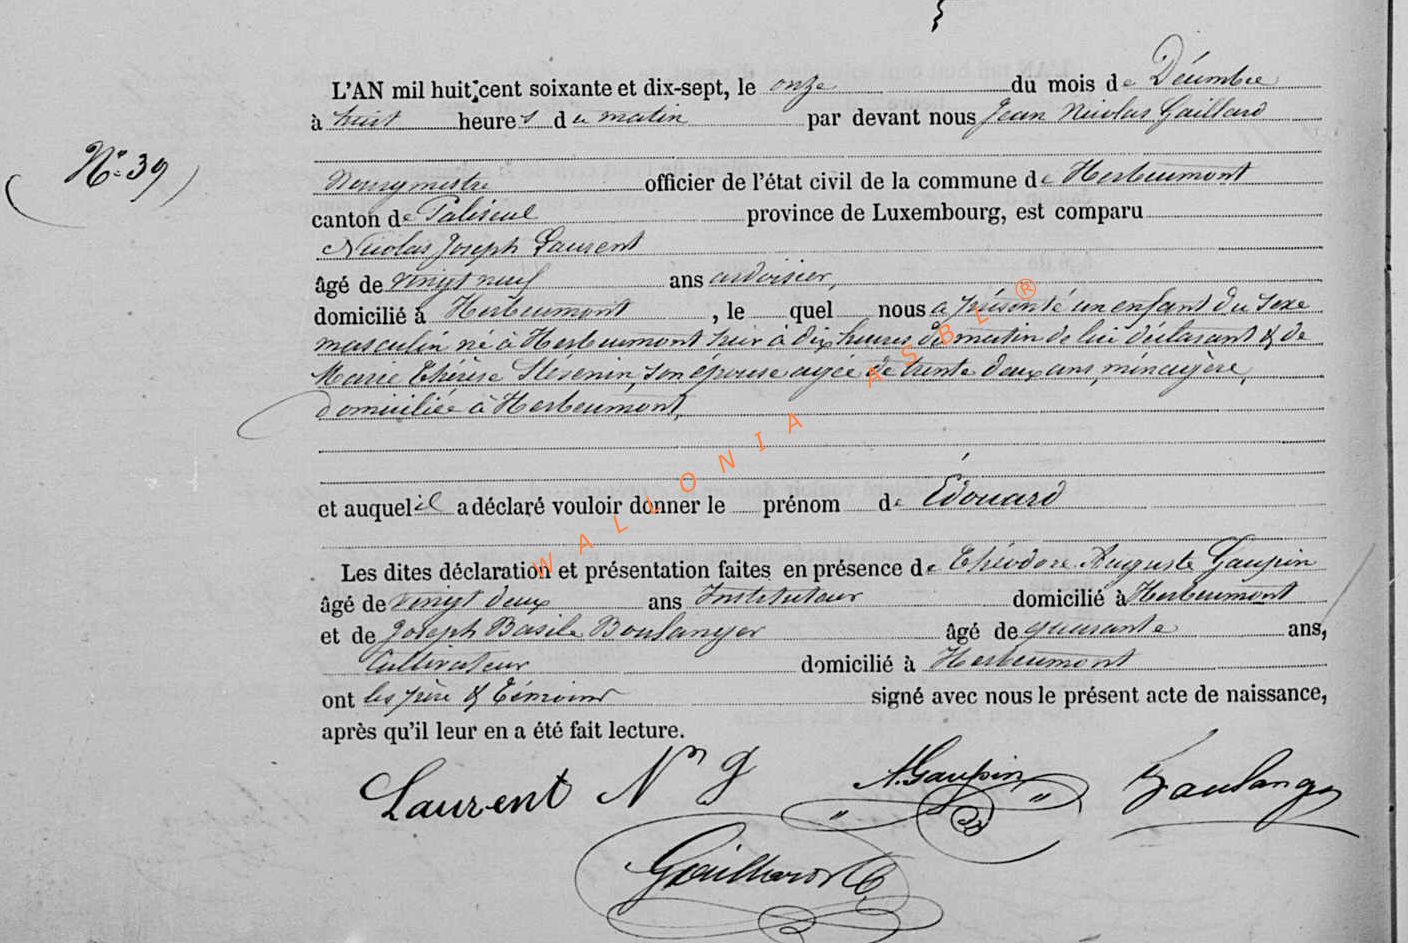 L'AN mil huit cent soixante et dix-sept, le onze du mois de Décembre
à huit heures du matin par devant nous Jean Nicolas Gaillard
N° 39
Bourgmestre officier de l'état civil de la commune de Herbeumont
canton de Paliseul province de Luxembourg, est comparu
Nicolas Joseph Laurent
âgé de vingt neuf ans ardoisier,
domicilié à Herbeumont, le quel nous a présenté un enfant du sexe
masculin né à Herbeumont hier à dix heures du matin de lui déclarant & de
Marie Thérèse son épouse agée de trente deux ans, ménagère,
domiciliée à Herbeumont,
et auquel il a déclaré vouloir donner le prénom de Édouard
Les dites déclaration et présentation faites en présence de Théodore Auguste Gaupin
âgé de vingt deux ans Instituteur domicilié à Herbeumont
et de Joseph Basile Boulanger âgé de quarante ans,
Cultivateur domicilié à Herbeumont
ont les père & témoins signé avec nous le présent acte de naissance,
après qu'il leur en a été fait lecture.
Laurent N J A. Gaupin Boulanger
Gaillard
WALLONIA ASBL ®